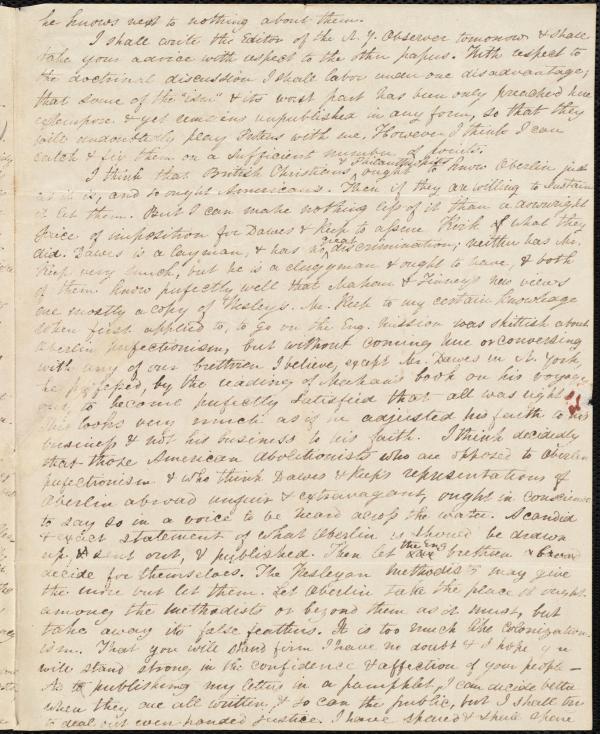 he knows next to nothing about them.
I shall write the Editor of the N. Y. Observer tomorrow & shall
take your advice with respect to the other papers. With respect to
the doctrinal discussion I shall labor under one disadvantage;
that some of the "ism" & its worst part has been only preached here
& yet remains unpublished in any form, so that they
will undoubtedly play with me. However I think I can
catch & fix them on a sufficient number of points.
I think that British Christians & Philanthropists ought to know Oberlin just
as it is, and so ought Americans. Then if they are willing to sustain
it let them. But I can make nothing less of it than a downright
piece of imposition for Dawes & Keep to assure Kirk of what they
did. Dawes is a layman, & has no great discrimination; neither has Mr.
Keep very much, but he is a clergyman & ought to have, & both
of them know perfectly well that Mahan & Finney's new views
are mostly a copy of Wesley's. Mr. Keep to my certain knowledge
when first applied to, to go on the Eng. mission was skittish about
Oberlin perfectionism, but without coming here or conversing
with any of our brethren I believe, except Mr. Dawes in N. York
he professed, by the reading of Mahan's book on his voyage
over, to become perfectly satisfied that all was right.
This looks very much as if he adjusted his faith to his
business & not his business to his faith. I think decidedly
that those American Abolitionists who are opposed to Oberlin
perfectionism & who think Dawes & Keep's representations of
Oberlin abroad unfair & extravagant, ought in conscience
to say so in a voice to be heard across the water. A candid
& exact statement of what Oberlin is should be drawn
up & sent out, & published. Then let the Eng. brethren
decide for themselves. The Wesleyan Methodists may give
the more but let them. Let Oberlin take the place it ought
among the Methodists or beyond them as it must, but
take away its false feathers. It is too much like colonization-
ism. That you will stand firm I have no doubt & I hope you
will stand strong in the confidence & affection of your people —
As to publishing my letters in a pamphlet, I can decide better
when they are all written, & so can the public, but I shall try
to deal out even handed justice. I have spared & shall spare